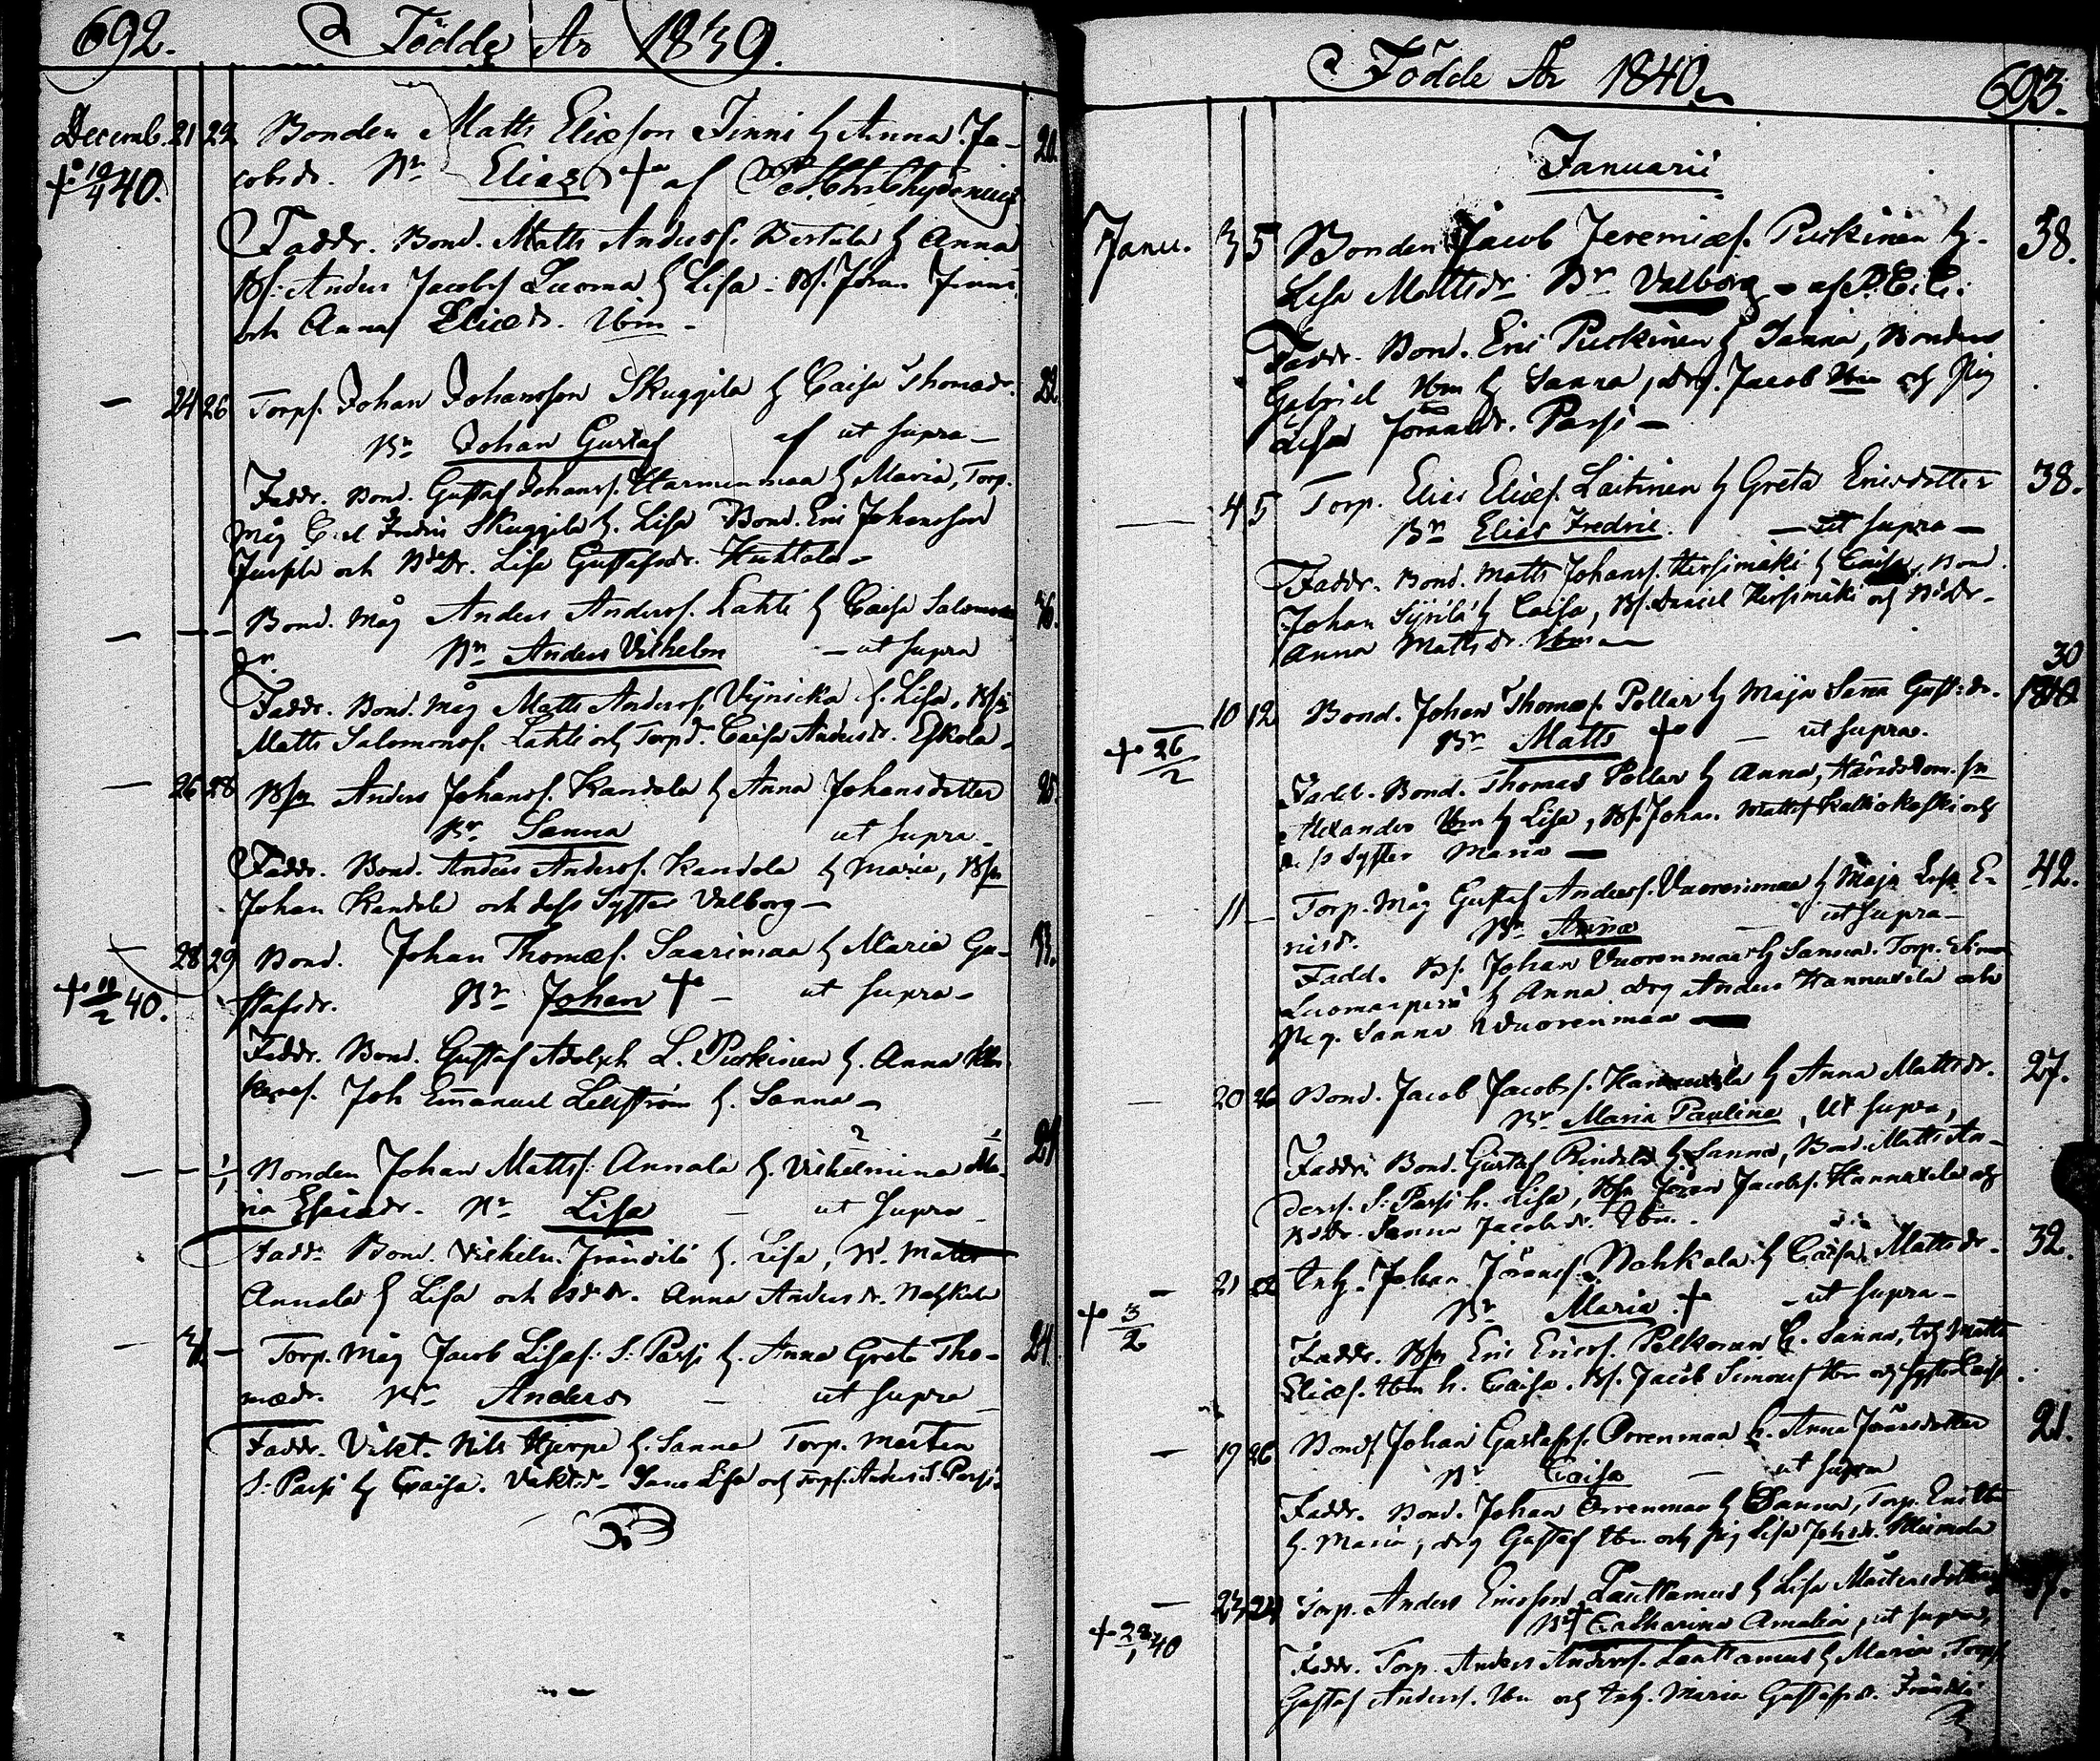 692. Födde År 1839.
Decemb. 21 22 Bonden Matts Eliæson Finni h Anna Ja- 20.
+ 19/4 40. cobsdr. Bn Elias + af
Faddr. Bond. Matts Andersf. Bertula h Anna
Bs. Anders Jacobsf Luoma h Lisa. Bs. Jöran Finni
och Anna Eliædr. Ibm -
— 24 26 Torps. Johan Johansson Skuggila h Caisa Thomædr.
Bn Johan Gustaf af ut supra -
Faddr. Bond. Gustaf Johansf. Harmunmaa h Maria, Torp.
Måg Carl Fredric Skuggila h. Lisa Bond. Eric Johansson
och Lisa Gustafsdr. Huhtala -
— — — Bond. Måg Anders Andersf. Lahti h Caisa Salomons 36.
dr. Bn Anders Vilhelm — ut supra
Faddr. Bond. Måg Matts Andersf. Vijnicka h. Lisa, Bsn
Matts Salomonsf. Lahti och Torpd. Caisa Andersdr. Eskola -
— 26 28 Bsn Anders Johansf. Kandola h Anna Johansdotter 25.
Bn Sanna ut supra -
Faddr. Bond. Anders Andersf. Kandola h Maria, Bsn
Johan Kandola och dess Syster Valborg -
28 29 Bond. Johan Thomæf. Saarimaa h Maria Gu- 33.
+ 11/2 40. stafsdr. Bn Johan + - ut supra -
Faddr. Bond. Gustaf Adolph L. Purkinen h. Anna
Joh Emanuel Lillström h. Sanna -
— — 1/1 Bonden Johan Mattsf. Annala h. Vilhelmina Ma-
ria Esaiædr. Bn Lisa - ut supra -
Fadd. Bond. Vilhelm Fränsilä h. Lisa, B. Matts
Annala h Lisa och Anna Andersdr.
— 31. — Torp. Måg Jacob Lisas. S. Passi h. Anna Greta Tho- 24.
mædr. Bn Anders - ut supra -
Faddr. Vakt. Nils Hjerpe h. Sanna Torp. Mårten
S. Passi h Caisa. Lisa och Torps. Anders S. Passi.
Födde År 1840. 693.
Januarii
Janu. 3 5 Bonden Jacob Jeremiæf. Purkinen h. 38.
Lisa Mattsdr. Bn Valborg - af P. E. C.
Faddr. Bond. Eric Purkinen h Sanna, Bonden
Gabriel Ibm h Sanna, drg. Jacob Ibm och Pig
Lisa Passi -
— 4 5 Torp. Elias Eliæf. Laitinen h Greta Ericsdotter 38.
Bn Elias Fredric. — ut supra —
Faddr. Bond. Matts Johansf. Hirsimäki h Caisa, Bond.
Johan Syrilä h Caisa, Bs. Daniel Hirsimäki och
Anna Mattsdr. Ibm —
30
— 10 12 Bond. Johan Thomæf. Pollar h Maja Sanna Gustsdr.
+ 26/2 Bn Matts + - ut supra.
Fadd. Bond. Thomas Pollar h Anna,
Alexander Ibm h Lisa, Bs. Johan Mattsf Kalliokoski och
Syster Maria —
11 — Torp. Måg Gustaf Andersf. Vuorenmaa h Maja Lisa E- 42.
ricsdr. Bn Anna - ut supra -
Fadd. Bs. Johan Vuorenmaa h Sanna. Torp.
Luomanperä h Anna drg Anders Hannuxela och
Pig. Sanna Vuorenmaa —
— 20 26 Bond. Jacob Jacobsf. Hannuxela h Anna Mattsdr. 27.
Bn Maria Paulina, ut supra,
Faddr. Bond. Gustaf Rindala h Sanna, Bond. Matts An-
dersf. S. Passi h. Lisa, Bsn Jöran Jacobsf. Hannuxela och
Sanna Jacobsdr. Ibm.
— 21 22 Inh. Johan Jöransf. Nahkala h Caisa Mattsdr. 32.
+ 3/2 Bn Maria + - ut supra -
Faddr. Bsn Eric Ericsf. Pelkonen h. Sanna, Inh Matts
Eliæf. Ibm h. Caisa. Bs. Jacob Simonsf Ibm och Syster Caisa.
— 19 26 Bonds Johan Gustafsf. Orrenmaa h. Anna 21.
Bn Caisa — ut supra
Faddr. Bond. Johan Orrenmaa h Sanna, Torp. Eric Ibm
h. Maria, drg Gustaf Ibm och Pig Lisa Johsdr.
— 23 24 Torp. Anders Ericsson Lauttamus h Lisa Mårtensdotter 37.
+ 28/1 40 Bn + Catharina Amalia, ut supra,
Faddr. Torp. Anders Andersf. Lauttamus h Maria, Torps.
Gustaf Andersf. Ibm och Inh. Maria Gustafsdr.